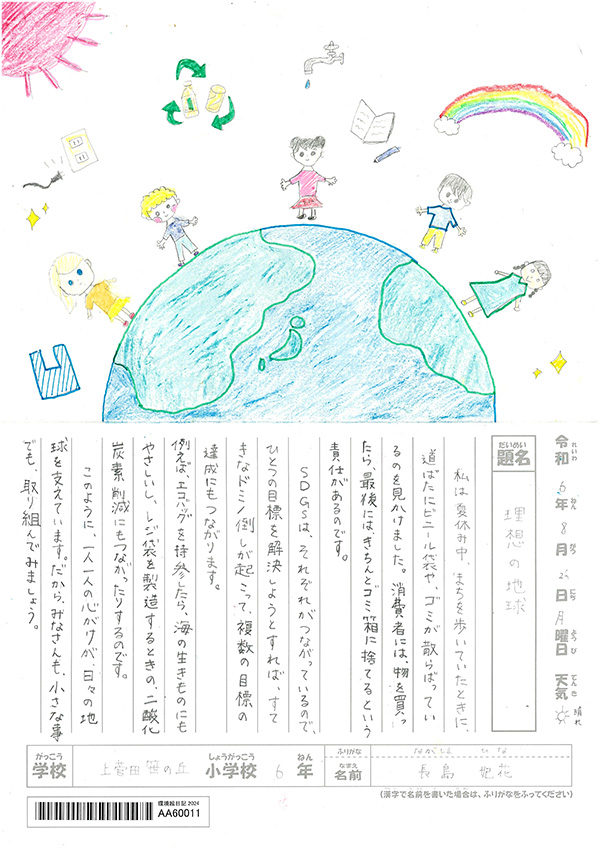 令和6年8月26日月曜日 天気 晴れ
れいわ ねん がつ にち ようび てんき
だいめい
題名 理想の地球
私は夏休み中、まちを歩いていたときに、
道ばたにビニール袋や、ゴミが散らばってい
るのを見かけました。消費者には、物を買っ
たら、最後には、きちんとゴミ箱に捨てるという
責任があるのです。
SDGsは、それぞれがつながっているので、
ひとつの目標を解決しようとすれば、すて
きなドミノ倒しが起こって、複数の目標の
達成にもつながります。
例えば、エコバッグを持参したら、海の生きものにも
やさしいし、レジ袋を製造するときの、二酸化
炭素削減にもつながったりするのです。
このように、一人一人の心がけが、日々の地
球を支えています。だから、みなさんも、小さな事
でも、取り組んでみましょう。
がっこう しょうがっこう ねん ふりがな ながしま ひな
学校 上菅田笹の丘 小学校 6年 なまえ 名前 長島 妃花
(漢字で名前を書いた場合は、ふりがなをふってください)
環境絵日記 2024
AA60011